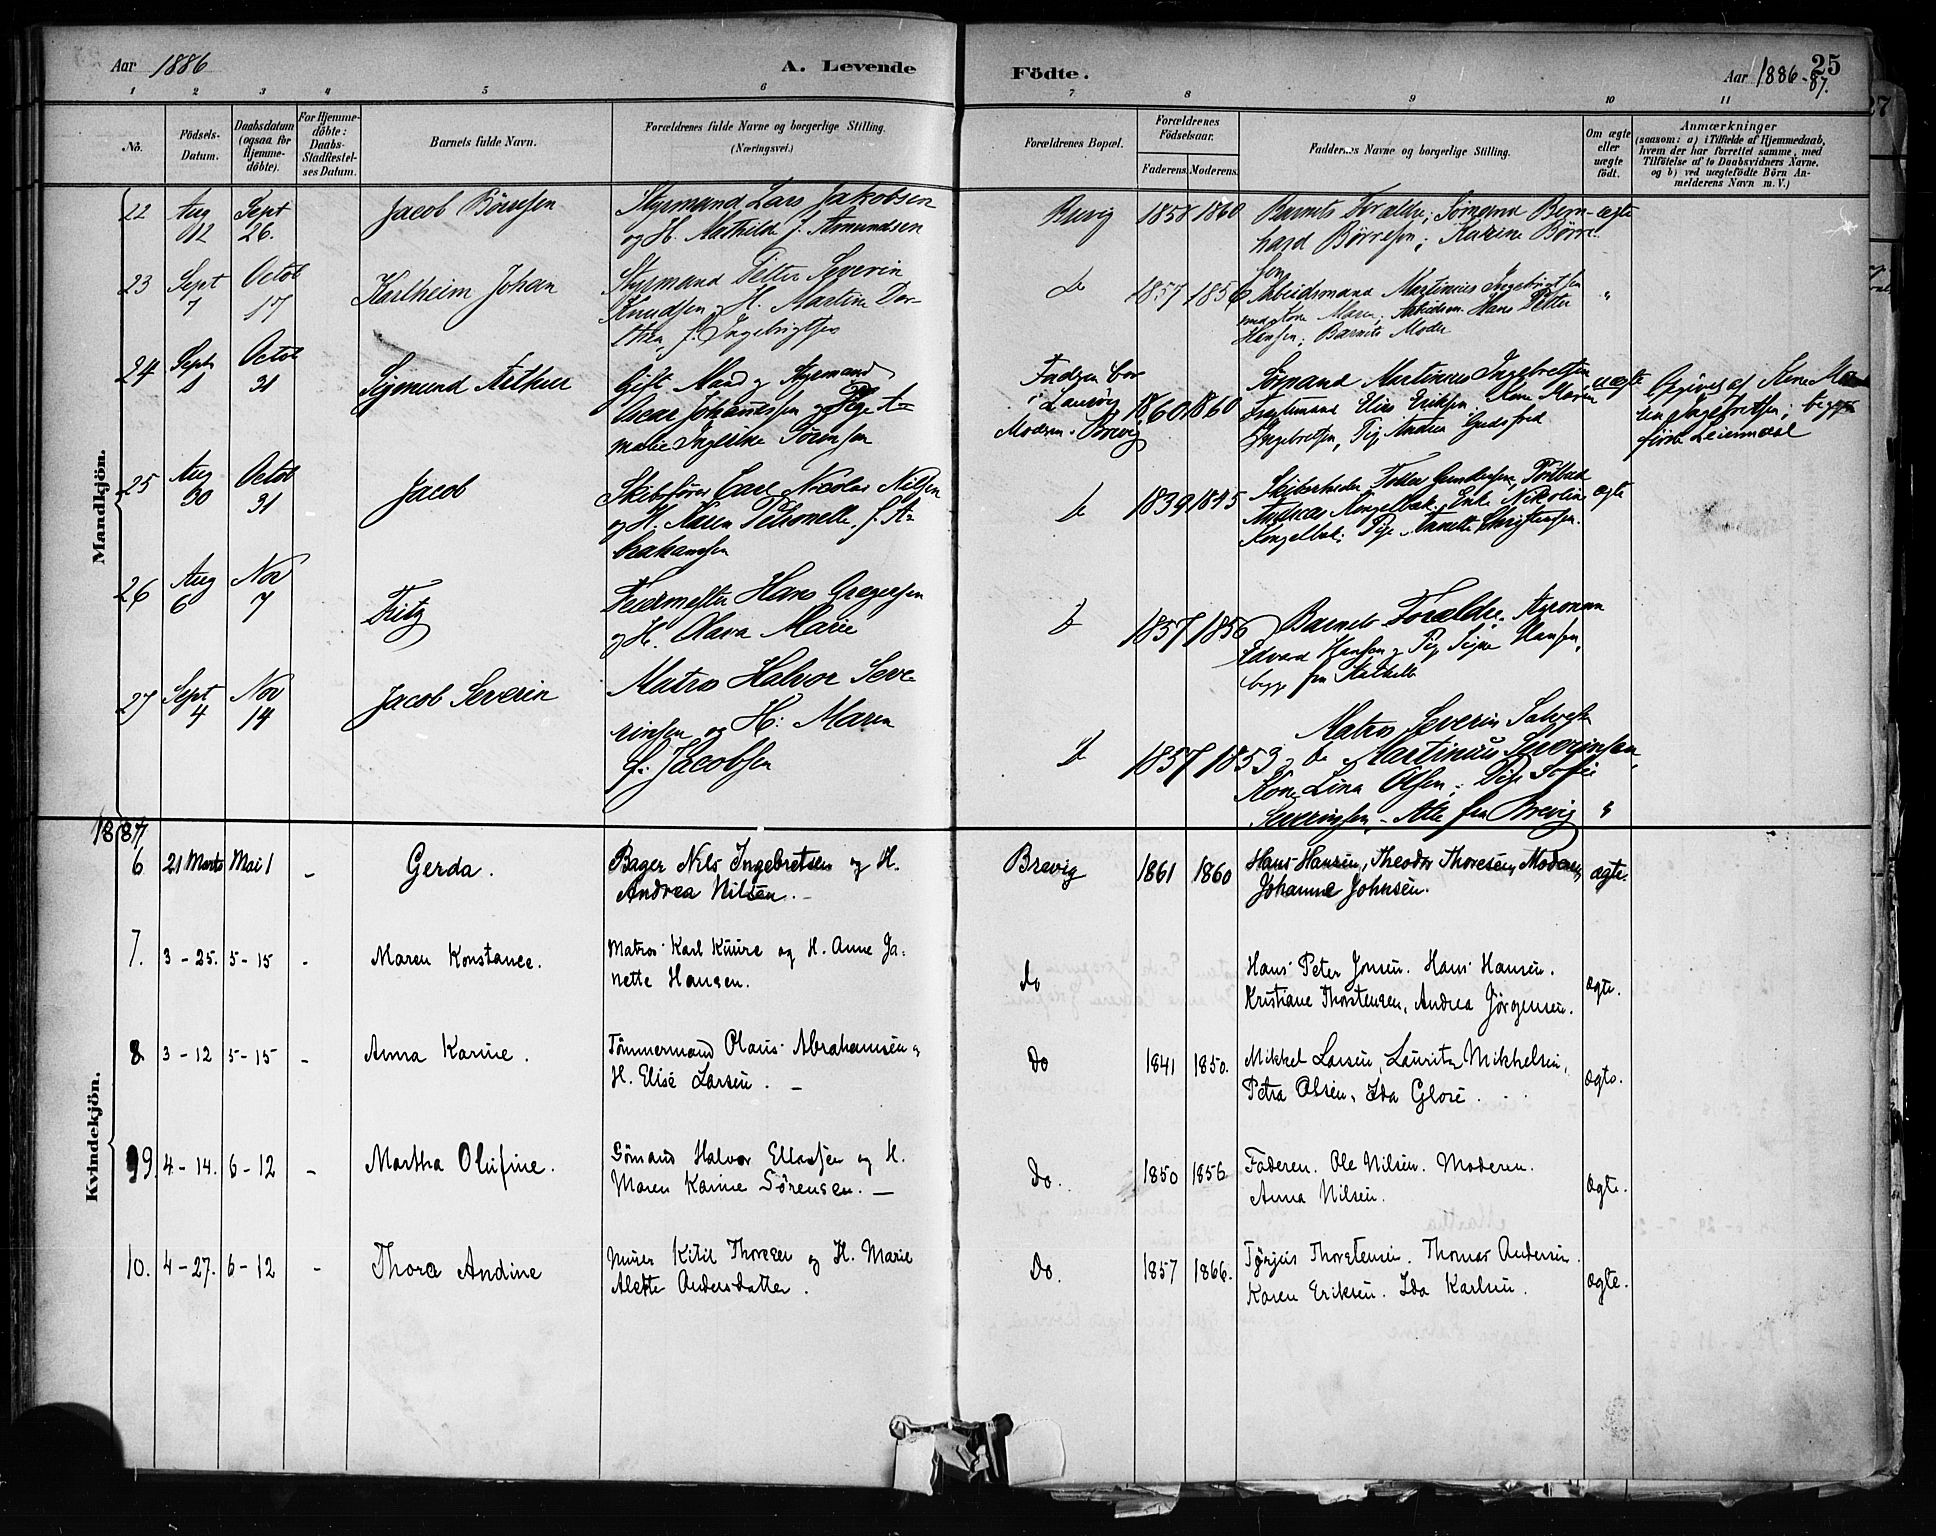 Aar 1886 A. Levende Födte. Aar 1886-87. 25
1 2 3 4 5 6 7 8 9 10 11
No. Födsels-Datum. Daabsdatum (ogsaa for Hjemme-döbte). For Hjemme-döbte: Daabs-Stadfæstel-ses Datum. Barnets fulde Navn. Forældrenes fulde Navne og borgerlige Stilling. (Næringsvei.) Forældrenes Bopæl. Forældrenes Födselsaar. Faderens. Moderens. Faddernes Navne og borgerlige Stilling. Om ægte eller uægte født. Anmærkninger (saasom: a) i Tilfælde af Hjemmedaab, hvem der har forrettet samme, med Tilföielse af to Daabsvidners Navne, og b) ved uægtefödte Börn An-melderens Navn m. V.)
Mandkjön.
22 Aug 12 Sept 26. Jacob Börresen Styrmand Lars Jakobsen Brevig 1858 1860 Barnets Forældre; Sömand Bern- ægte
og H. Mathilde f. Amundsen hard Börresen; Karine Börre
sen
23 Sept 7 Octob 17 Karlheim Johan Styrmand Petter Severin do 1857 1856 Arbeidsmand Martinius Ingebrigtsen "
Knudsen og H. Martine Dor- med Kone Maren; Arbeidsm. Hans Petter
thea f. Ingebrigtsen Hansen; Barnets Moder
24 Sept 1 Octob 31 Sigmund Arthur Gift Mand og Styrmand Fadren bor 1860 1860 Sömand Martinius Ingebretsen uægte Opgives af Kone Ma
Oscar Johannessen og Pige A- i Laurvig Elias Eriksen, Kone Maren ren Ingebretsen; begges
malie Ingerine Sörensen Modren i Brevig Ingebretsen, Pige Andrea Gudsfred förste Leiermaal
25 Aug 30 Octob 31 Jacob Skibsförer Carl Nicolai Nilsen do 1839 1845 Skibsrheder Gundersen, ægte
og H. Karen Petronelle f. A- Andreas Kongelbak, Enke Nikoline
brahamsen Kongelbak; Pige Anette Christensen.
26 Aug 6 Nov 7 Fritz Feiermester Hans Gregersen do 1857 1856 Barnets Forældre.
og H. Olava Marie Edvard Hansen og Pige Signe Hansen,
begge fra Stathelle
27 Sept 4 Nov 14 Jacob Severin Matros Halvor Seve- do 1857 1853 Matros Severin
rinsen og H: Maren og do Martinius Severinsen,
f: Jacobsen Kone Lina Olsen; Pige Sofie
Severinsen, - Alle fra Brevig "
1887
Kvindekjön.
6 21 Marts Mai 1 - Gerda. Bager Nils Ingebretsen og H. Brevig 1861 1860 Hans Hansen, Theodor Thoresen, Moderen, ægte.
Andrea Nilsen. - Johanne Johnsen.
7. 3 - 25. 5 - 15 - Maren Konstance. Matros Karl Kuure og H. Anne Ja- do Hans Peter Jonsen. Hans Hansen. ægte.
nette Hansen. Kristiane Thorstensen, Andrea Jörgensen.
8 3 - 12 5 - 15 - Anna Karine. Tömmermand Olaus Abrahamsen og Do 1841 1850. Mikkel Larsen, Lauritz Mikkelsen, ægte.
H. Elise Larsen. - Petra Olsen, Ida Glose.
9. 4 - 14. 6 - 12 - Martha Olufine. Sömand Halvor Ellessen og H. Do. 1850 1856 Faderen. Ole Nilsen. Moderen. ægte.
Maren Karine Sörensen. - Anna Nilsen.
10. 4 - 27. 6 - 12 - Thora Andine Murer Kitil Thoresen og H. Marie Do. 1857 1866. Törjus Thorstensen. Thomas Andersen. ægte.
Alette Andersdatter. Karen Eriksen. Ida Karlsen.